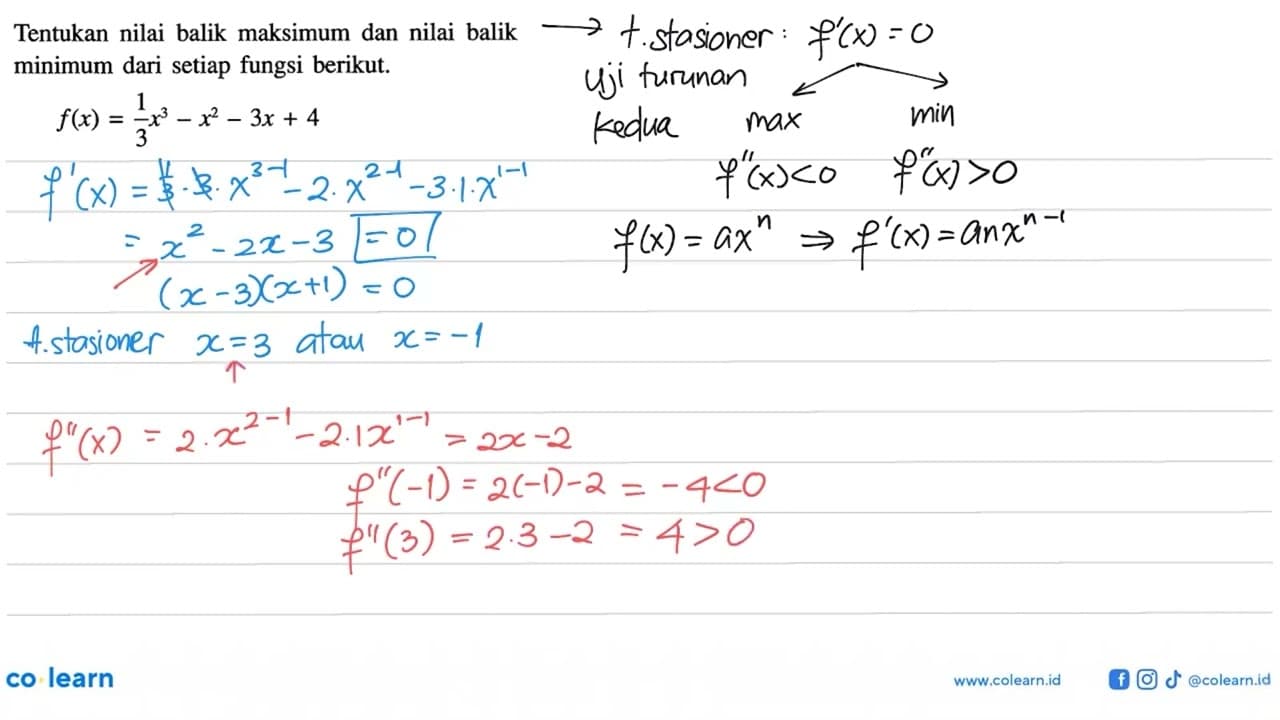 Tentukan nilai balik maksimum dan nilai balik
minimum dari setiap fungsi berikut.
f(x) = 1/3 x³ − x² − 3x + 4
→ t.stasioner : f'(x) = 0
uji turunan
kedua
max
min
f''(x)<0
f''(x)>0
f(x) = axⁿ ⇒ f'(x) = anxⁿ⁻¹
f'(x) = 1/3 · 3 · x³⁻¹ − 2 · x²⁻¹ − 3 · 1 · x¹⁻¹
= x² − 2x − 3 = 0
(x − 3)(x + 1) = 0
t.stasioner x = 3 atau x = −1
f''(x) = 2 · x²⁻¹ − 2 · 1x¹⁻¹ = 2x − 2
f''(−1) = 2(−1) − 2 = −4 < 0
f''(3) = 2 · 3 − 2 = 4 > 0
co learn
www.colearn.id
@colearn.id